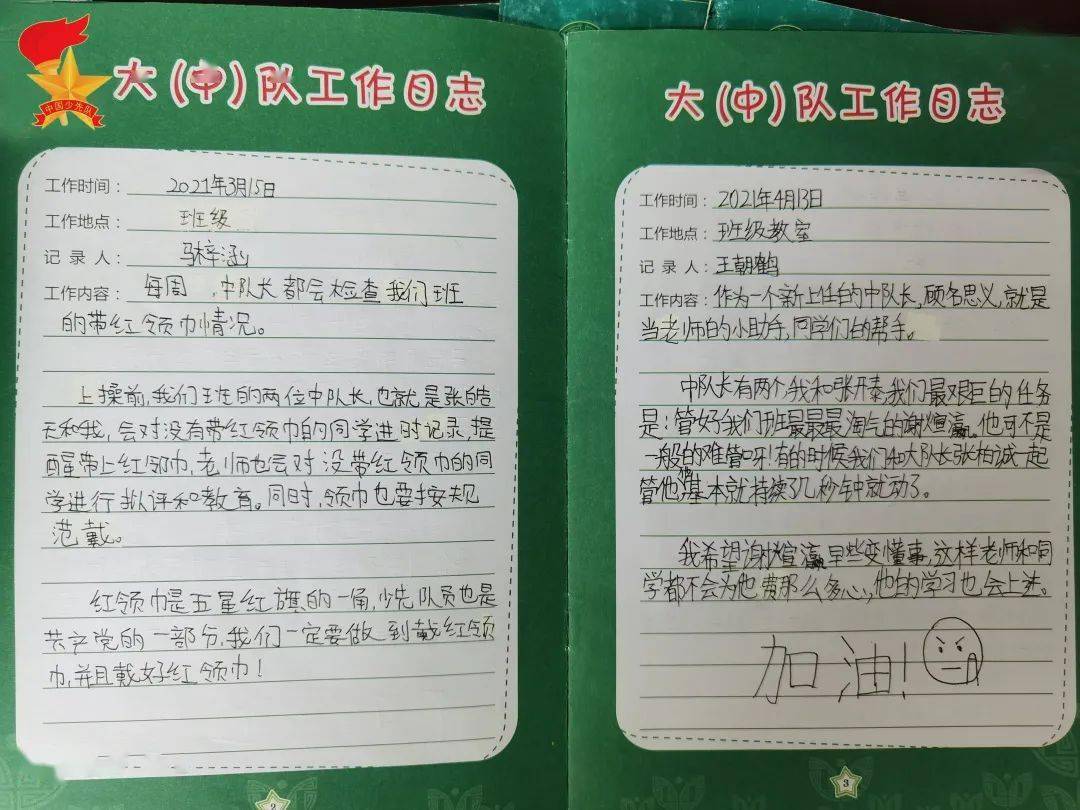 中国少先队
大(中)队工作日志
工作时间: 2021年3月15日
工作地点: 班级
记录人: 马梓涵
工作内容: 每周 中队长都会检查我们班
的带红领巾情况。
上操前,我们班的两位中队长,也就是张皓
天和我,会对没有带红领巾的同学进时记录,提
醒带上红领巾,老师也会对没带红领巾的同
学进行批评和教育。同时,领巾也要按规
范戴。
红领巾是五星红旗的一角,少先队员也是
共产党的一部分,我们一定要做到戴红领
巾,并且戴好红领巾!
2
大(中)队工作日志
工作时间: 2021年4月13日
工作地点: 班级教室
记录人: 王朝鹤
工作内容: 作为一个新上任的中队长,顾名思义,就是
当老师的小助手,同学们的帮手。
中队长有两个,我和张开泰,我们最艰巨的任务
是:管好我们班最最最淘气的谢煊瀛。他可不是
一般的难管呀!有的时候我们和大队长张柏诚一起
管他,他基本就持续了几秒钟就动了。
我希望谢煊瀛早些变懂事,这样老师和同
学都不会为他费那么多心,他的学习也会上进。
加油!
3